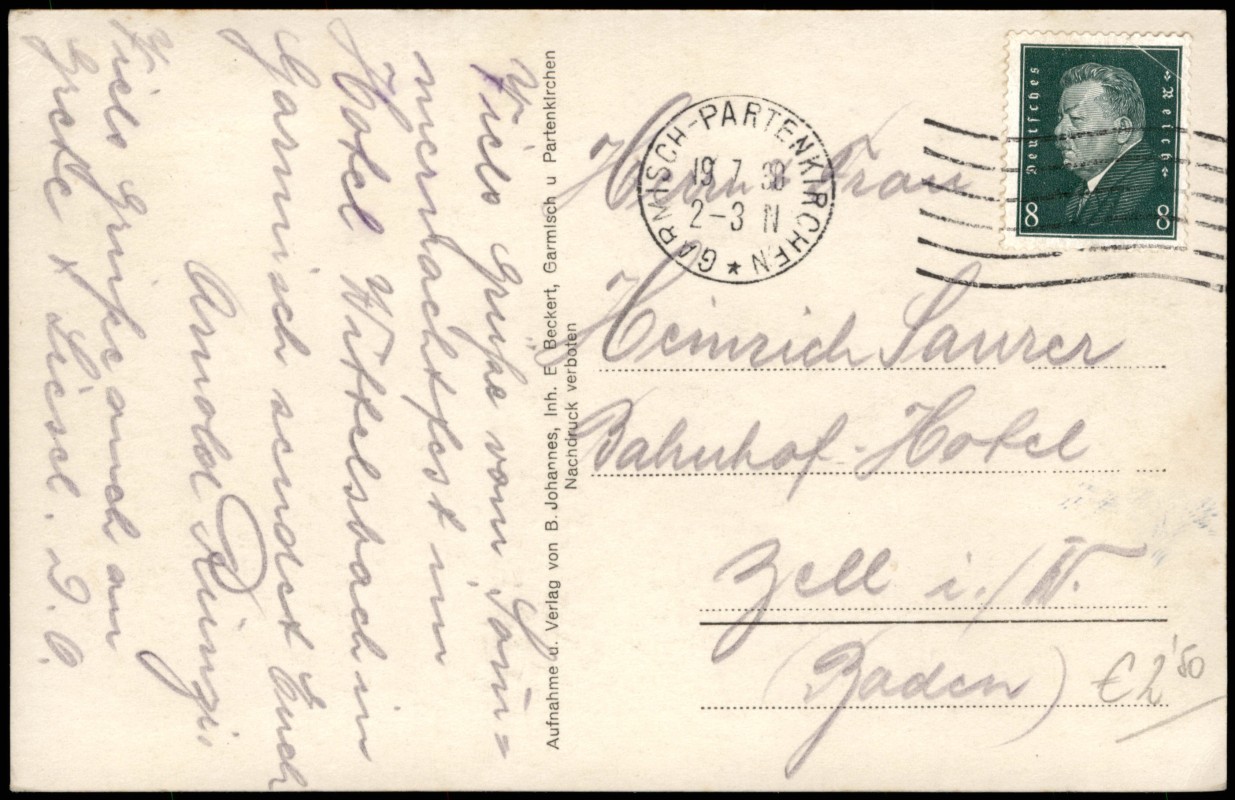 Viele Grüße vom Som=
mernachtfest im
Hotel Wittelsbach in
Garmisch sendet Euch
Arnold Ringi.
Viele Grüße auch an
Grete & Liesel. D. O.
Aufnahme u. Verlag von B. Johannes, Inh. E. Beckert, Garmisch u Partenkirchen
Nachdruck verboten
GARMISCH-PARTENKIRCHEN
19 7 30
2-3 N
Deutsches Reich
8 8
Herrn & Frau
Heinrich Saurer
Bahnhof-Hotel
Zell i./W.
(Baden)
€ 2'50